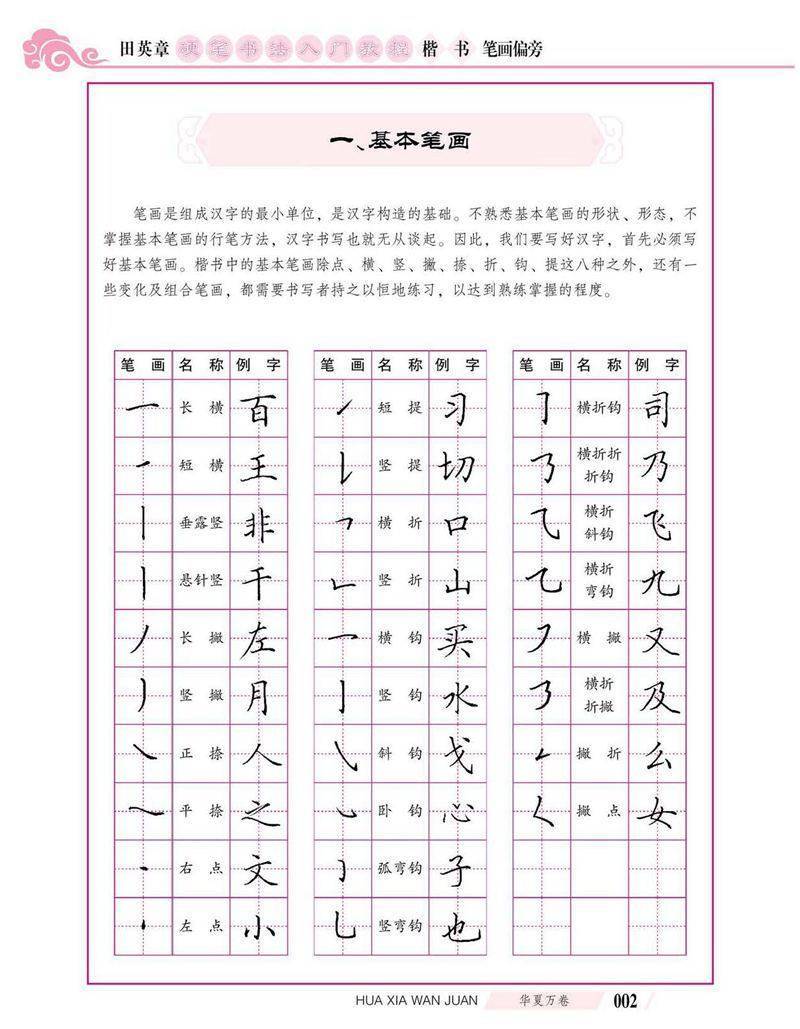 田英章 硬笔书法入门教程 楷书 笔画偏旁
一、基本笔画
笔画是组成汉字的最小单位，是汉字构造的基础。不熟悉基本笔画的形状、形态，不
掌握基本笔画的行笔方法，汉字书写也就无从谈起。因此，我们要写好汉字，首先必须写
好基本笔画。楷书中的基本笔画除点、横、竖、撇、捺、折、钩、提这八种之外，还有一
些变化及组合笔画，都需要书写者持之以恒地练习，以达到熟练掌握的程度。
笔画 名称 例字
长横 百
短横 王
垂露竖 非
悬针竖 干
长撇 左
竖撇 月
正捺 人
平捺 之
右点 文
左点 小
笔画 名称 例字
短提 习
竖提 切
横折 口
竖折 山
横钩 买
竖钩 水
斜钩 戈
卧钩 心
弧弯钩 子
竖弯钩 也
笔画 名称 例字
横折钩 司
横折折
折钩 乃
横折
斜钩 飞
横折
弯钩 九
横撇 又
横折
折撇 及
撇折 么
撇点 女
HUA XIA WAN JUAN 华夏万卷 002